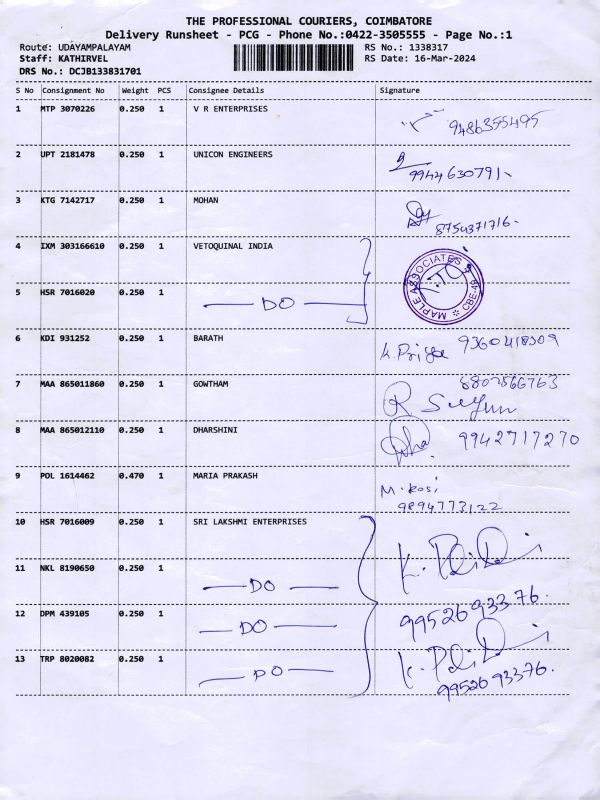 THE PROFESSIONAL COURIERS, COIMBATORE
Delivery Runsheet - PCG - Phone No.:0422-3505555 - Page No.:1
Route: UDAYAMPALAYAM RS No.: 1338317
Staff: KATHIRVEL RS Date: 16-Mar-2024
DRS No.: DCJB133831701
S No Consignment No Weight PCS Consignee Details Signature
1 MTP 3070226 0.250 1 V R ENTERPRISES 9486355495
2 UPT 2181478 0.250 1 UNICON ENGINEERS 9944630791
3 KTG 7142717 0.250 1 MOHAN 8754371716
4 IXM 303166610 0.250 1 VETOQUINAL INDIA
MAPLE ASSOCIATES
5 HSR 7016020 0.250 1 DO
6 KDI 931252 0.250 1 BARATH K. Priya 9360418309
7 MAA 865011860 0.250 1 GOWTHAM 8807566763
8 MAA 865012110 0.250 1 DHARSHINI 9942717270
9 POL 1614462 0.470 1 MARIA PRAKASH M. Rosi
9894773122
10 HSR 7016009 0.250 1 SRI LAKSHMI ENTERPRISES
11 NKL 8190650 0.250 1 DO
12 DPM 439105 0.250 1 DO 9952693376.
13 TRP 8020082 0.250 1 DO 9952693376.